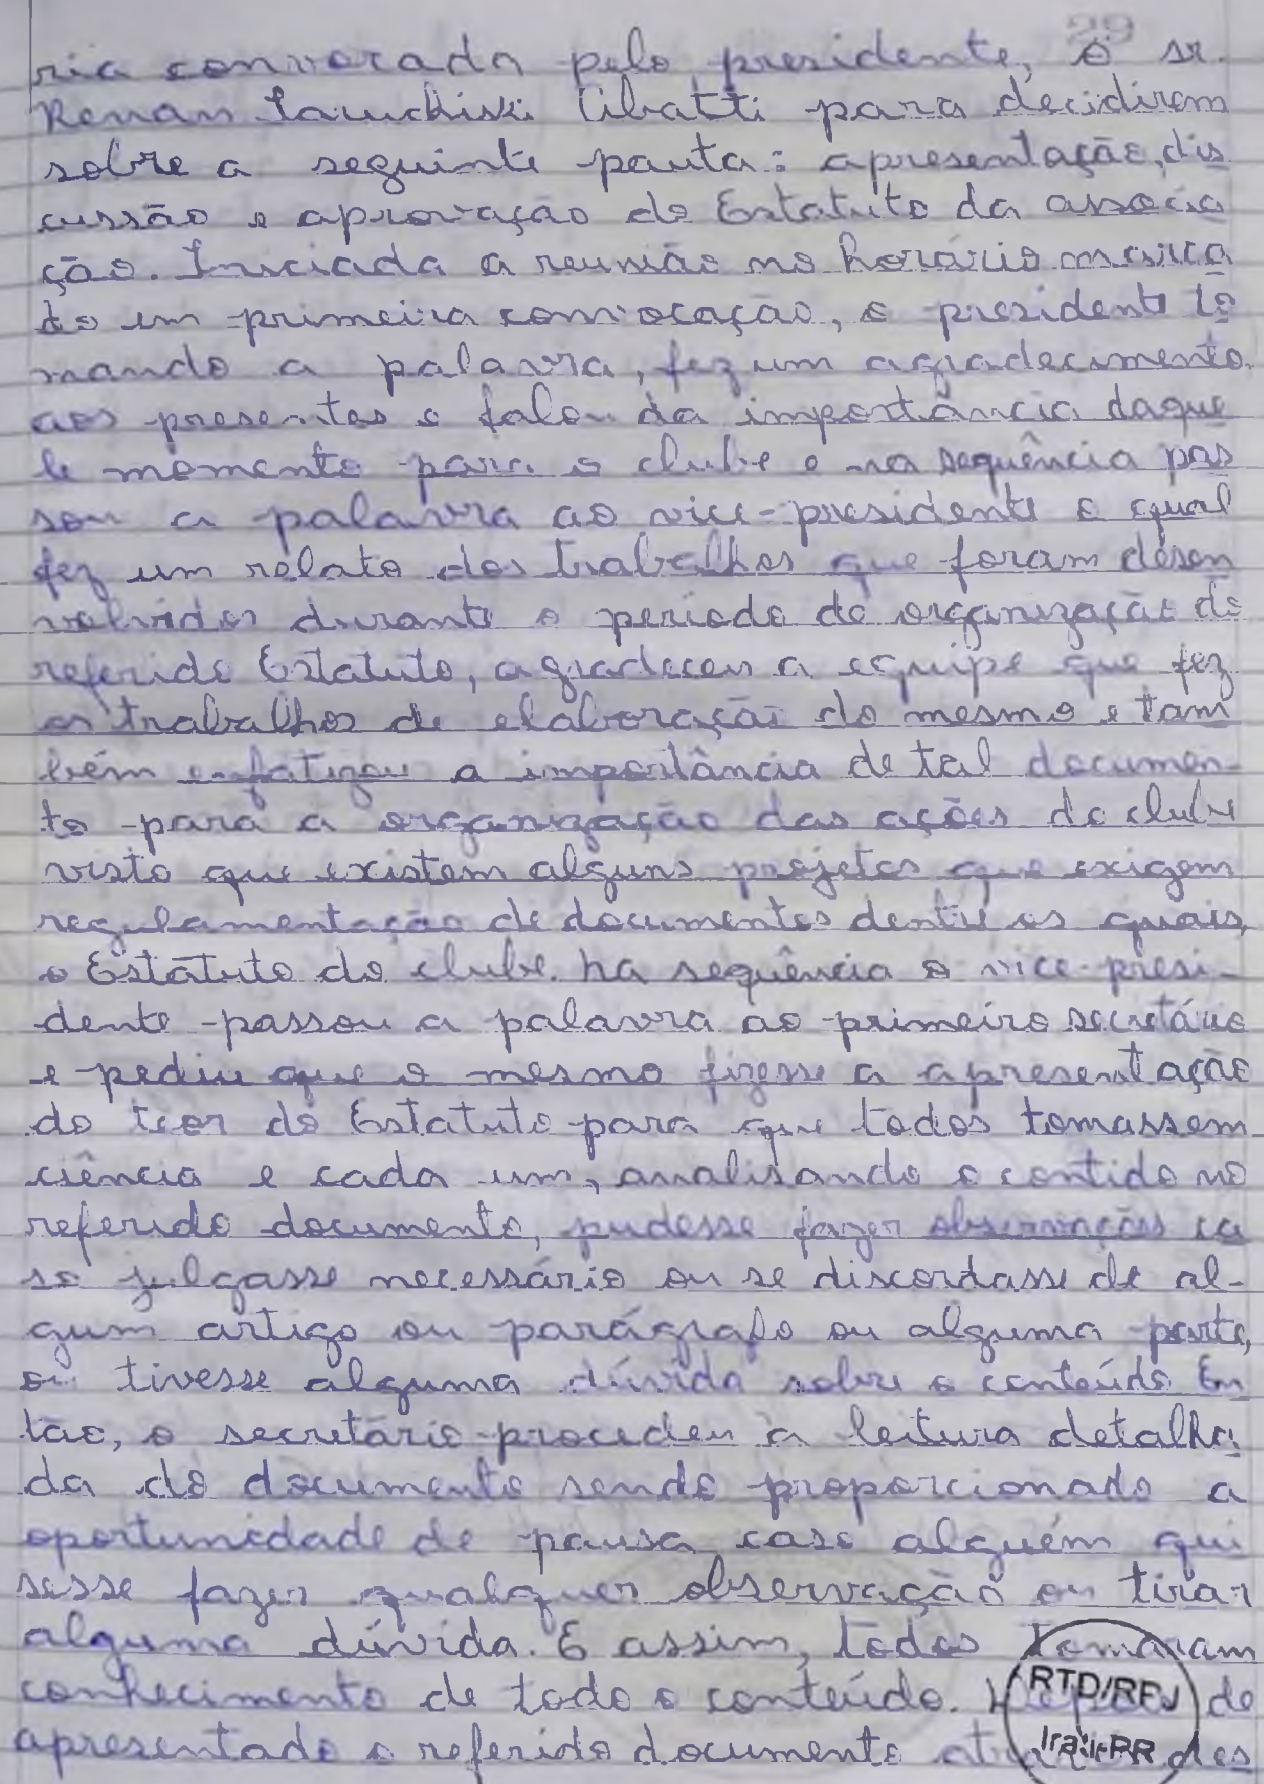 29
ria convocada pelo presidente, o sr.
Renan para decidirem
sobre a seguinte pauta: apresentação, dis
cussão e aprovação do Estatuto da associa
ção. Iniciada a reunião no horário marca
do em primeira convocação, o presidente to
mando a palavra, fez um agradecimento
aos presentes e falou da importância daque
le momento para o clube e na sequência pas
sou a palavra ao vice-presidente o qual
fez um relato dos trabalhos que foram desen
volvidos durante o período de organização do
referido Estatuto, agradeceu a equipe que fez
os trabalhos de elaboração do mesmo e tam
bém enfatizou a importância de tal documen-
to para a organização das ações do clube
visto que existem alguns projetos que exigem
regulamentação de documentos dentre os quais,
o Estatuto do clube. Na sequência o vice-presi-
dente passou a palavra ao primeiro secretário
e pediu que o mesmo fizesse a apresentação
do teor do Estatuto para que todos tomassem
ciência e cada um, analisando o contido no
referido documento, pudesse fazer observações ca
so julgasse necessário ou se discordasse de al-
gum artigo ou parágrafo ou alguma parte,
ou tivesse alguma dúvida sobre o conteúdo. En
tão, o secretário procedeu à leitura detalha
da do documento sendo proporcionado a
oportunidade de pausa caso alguém qui
sesse fazer qualquer observação ou tirar
alguma dúvida. E assim, todos tomaram
conhecimento de todo o conteúdo. de
apresentado o referido documento des
RTD/RPJ
Irati-PR